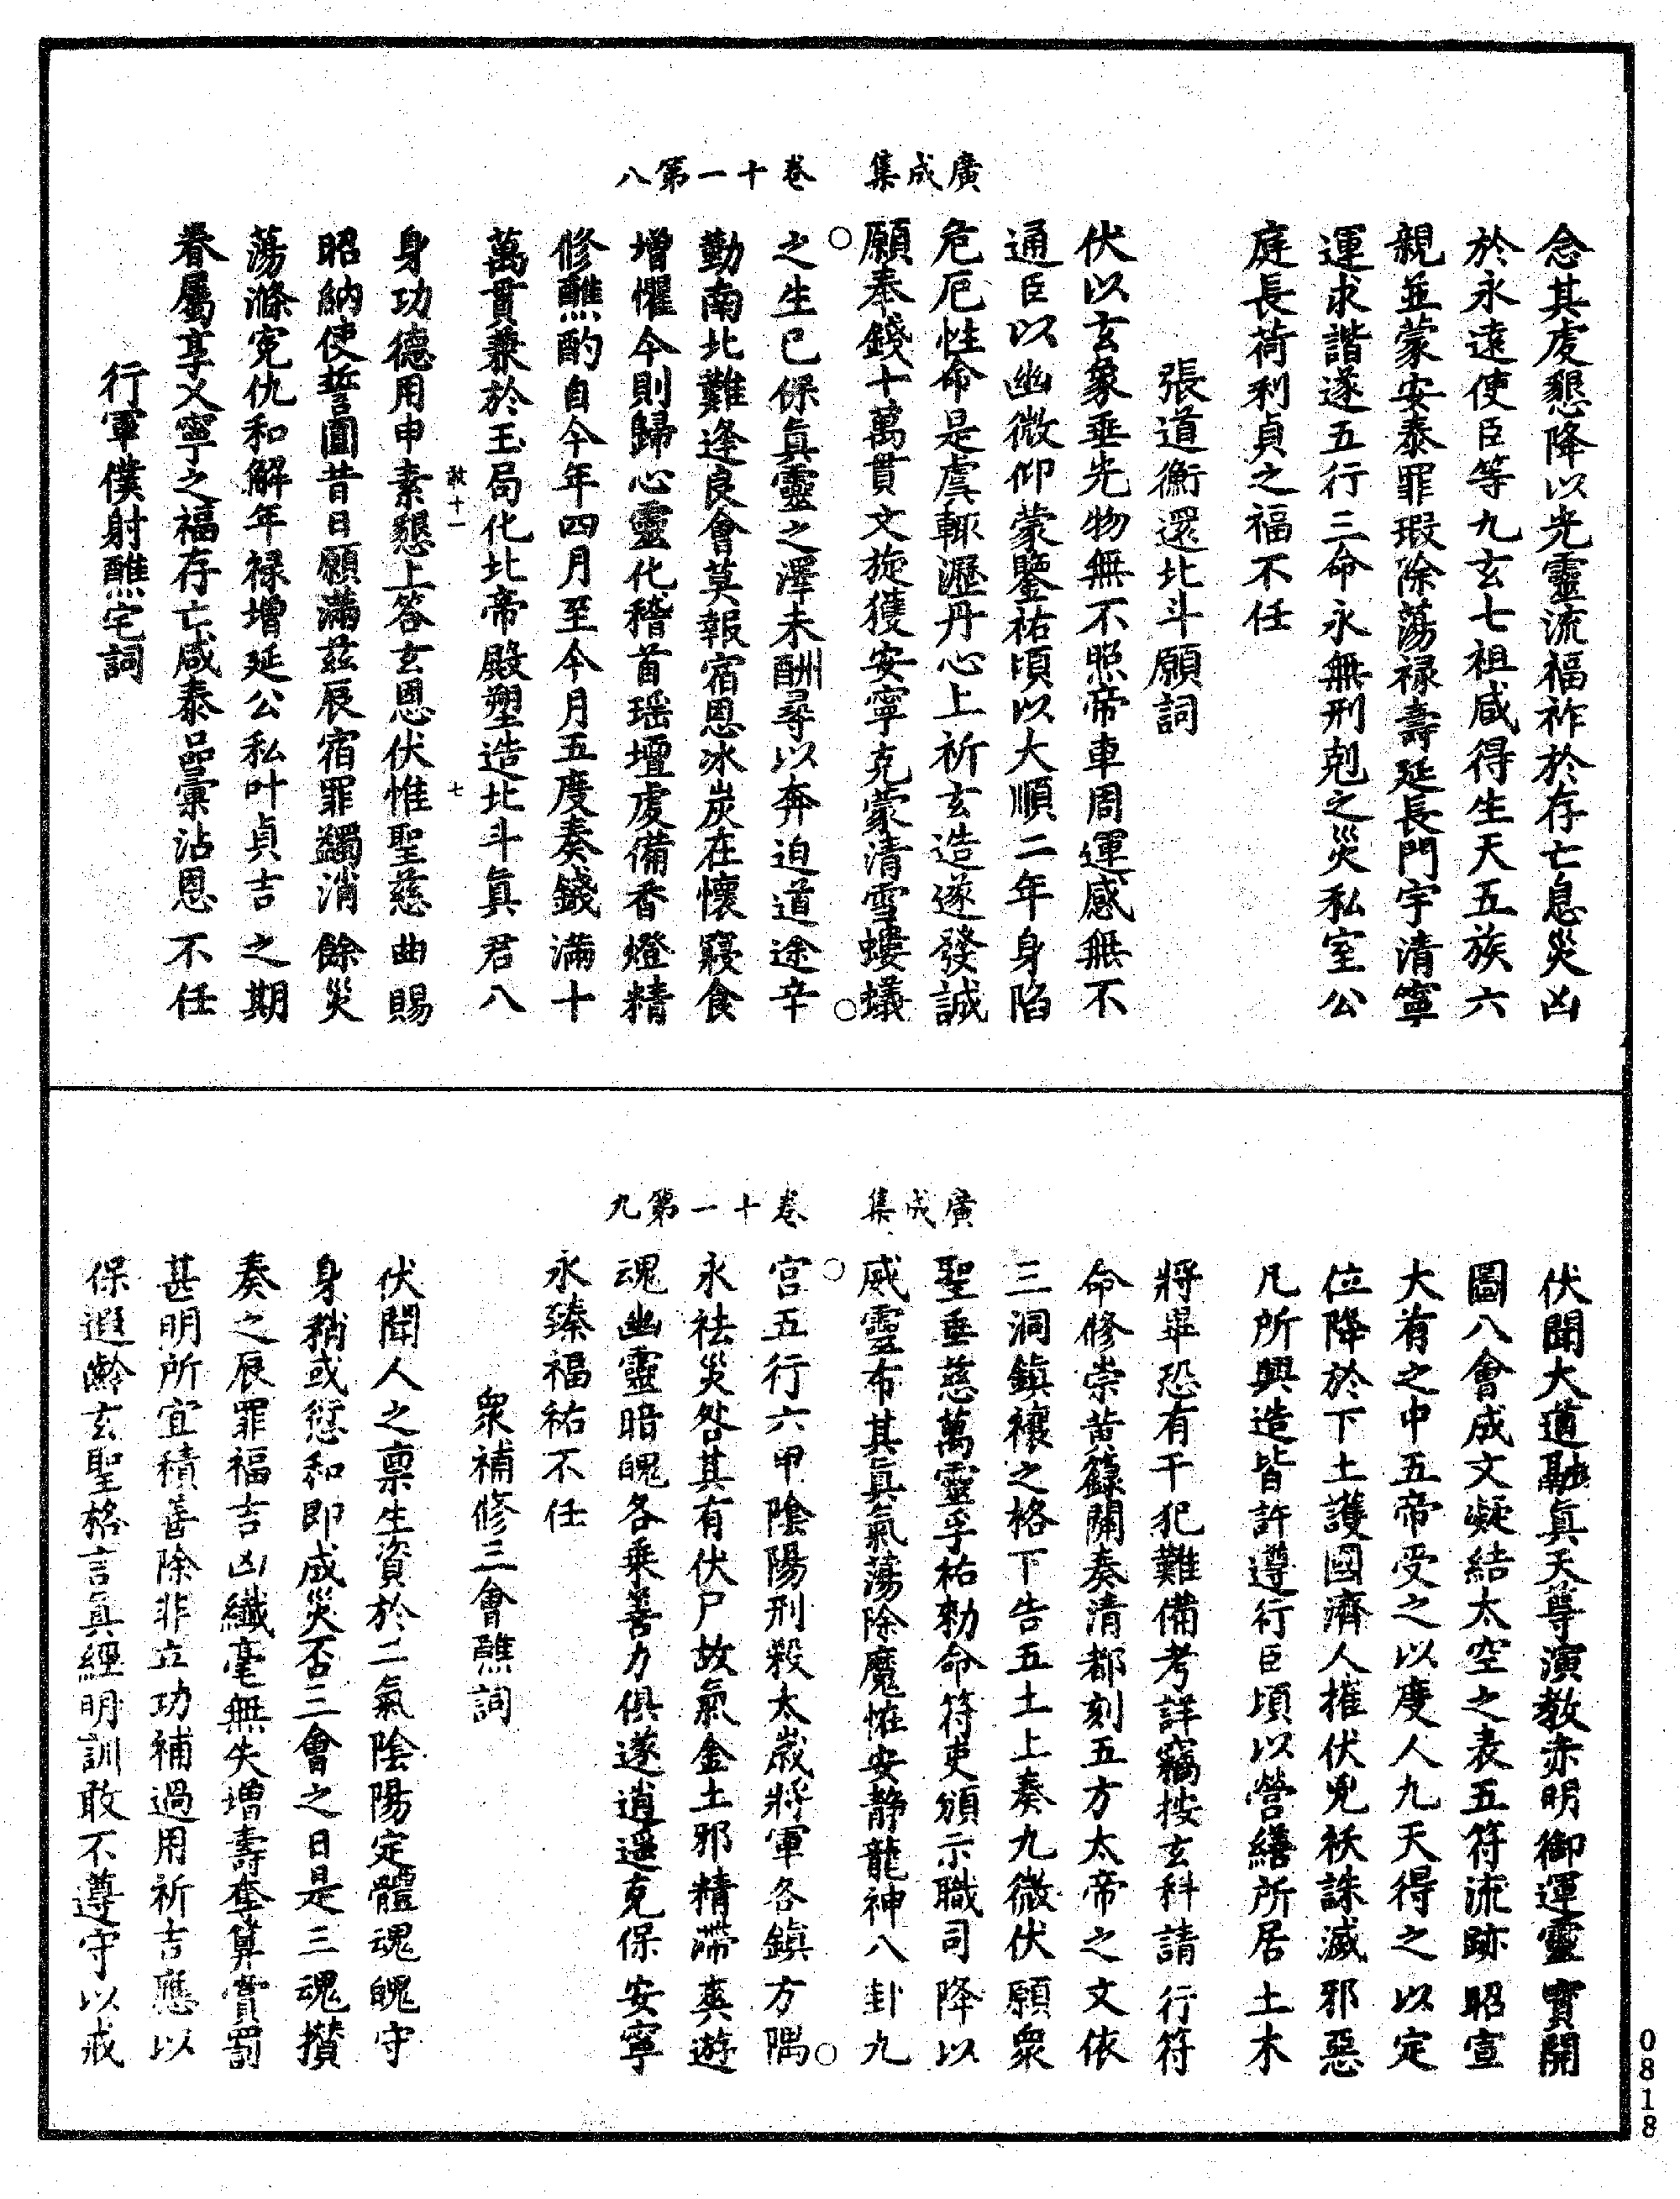 廣成集　卷十一第八
念其虔懇降以光靈流福祚於存亡息災凶
於永遠使臣等九玄七祖咸得生天五族六
親並蒙安泰罪瑕除蕩祿壽延長門宇清寧
運求諧遂五行三命永無刑剋之災私室公
庭長荷利貞之福不任
張道衡還北斗願詞
伏以玄象垂光物無不照帝車周運感無不
通臣以幽微仰蒙鑒祐頃以大順二年身陷
危厄性命是虞輒瀝丹心上祈玄造遂發誠
願奉錢十萬貫文旋獲安寧克蒙清雪螻蟻
之生已保真靈之澤未酬尋以奔迫道途辛
勤南北難逢良會莫報宿恩冰炭在懷寢食
增懼今則歸心靈化稽首瑤壇虔備香燈精
修醮酌自今年四月至今月五度奏錢滿十
萬貫兼於玉局化北帝殿塑造北斗真君八
敢十一　七
身功德用申素懇上答玄恩伏惟聖慈曲賜
昭納使誓圓昔日願滿茲辰宿罪蠲消餘災
蕩滌冤仇和解年祿增延公私叶貞吉之期
眷屬享乂寧之福存亡咸泰品彙沾恩不任
行軍僕射醮宅詞
廣成集　卷十一第九
伏聞大道融真天尊演教赤明御運靈寶開
圖八會成文凝結太空之表五符流跡昭宣
大有之中五帝受之以度人九天得之以定
位降於下土護國濟人摧伏兇祅誅滅邪惡
凡所興造皆許遵行臣頃以營繕所居土木
將畢恐有干犯難備考詳竊按玄科請行符
命修崇黃籙關奏清都刻五方太帝之文依
三洞鎮禳之格下告五土上奏九微伏願眾
聖垂慈萬靈孚祐勑命符吏頒示職司降以
威靈布其真氣蕩除魔恠安靜龍神八卦九
宮五行六甲陰陽刑殺太歲將軍各鎮方隅
永祛災咎其有伏尸故氣金土邪精滯爽遊
魂幽靈暗魄各乘善力俱遂逍遥克保安寧
永臻福祐不任
眾補修三會醮詞
伏聞人之稟生資於二氣陰陽定體魂魄守
身稍或愆和即成災否三會之日是三魂攢
奏之辰罪福吉凶纖毫無失增壽奪算賞罰
甚明所宜積善除非立功補過用祈吉應以
保遐齡玄聖格言真經明訓敢不遵守以戒
0818